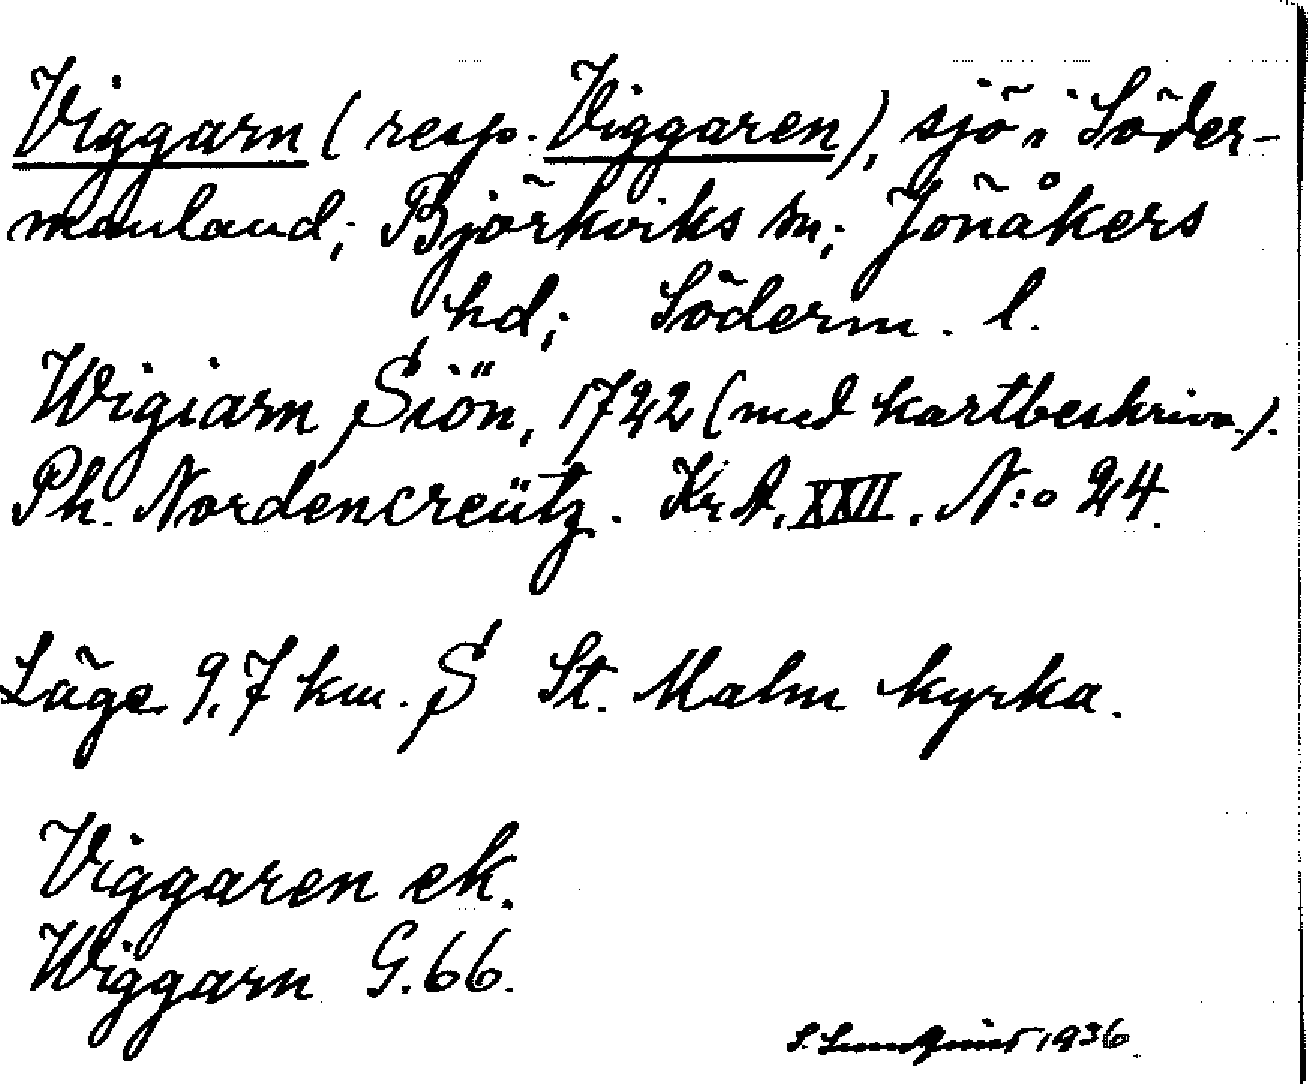 Viggarn (resp. Viggaren), sjö i Söder-
manland; Björkviks sn; Jönåkers
hd; Söderm. l.
Wigiarn Siön, 1722 (med kartbeskrivn.).
Ph. Nordencreütz. Kr. A. XXII. N:o 24.
Läge 9,7 km. S St. Malm kyrka.
Viggaren ek.
Wiggarn G. 66.
S. Lundquist 1936.